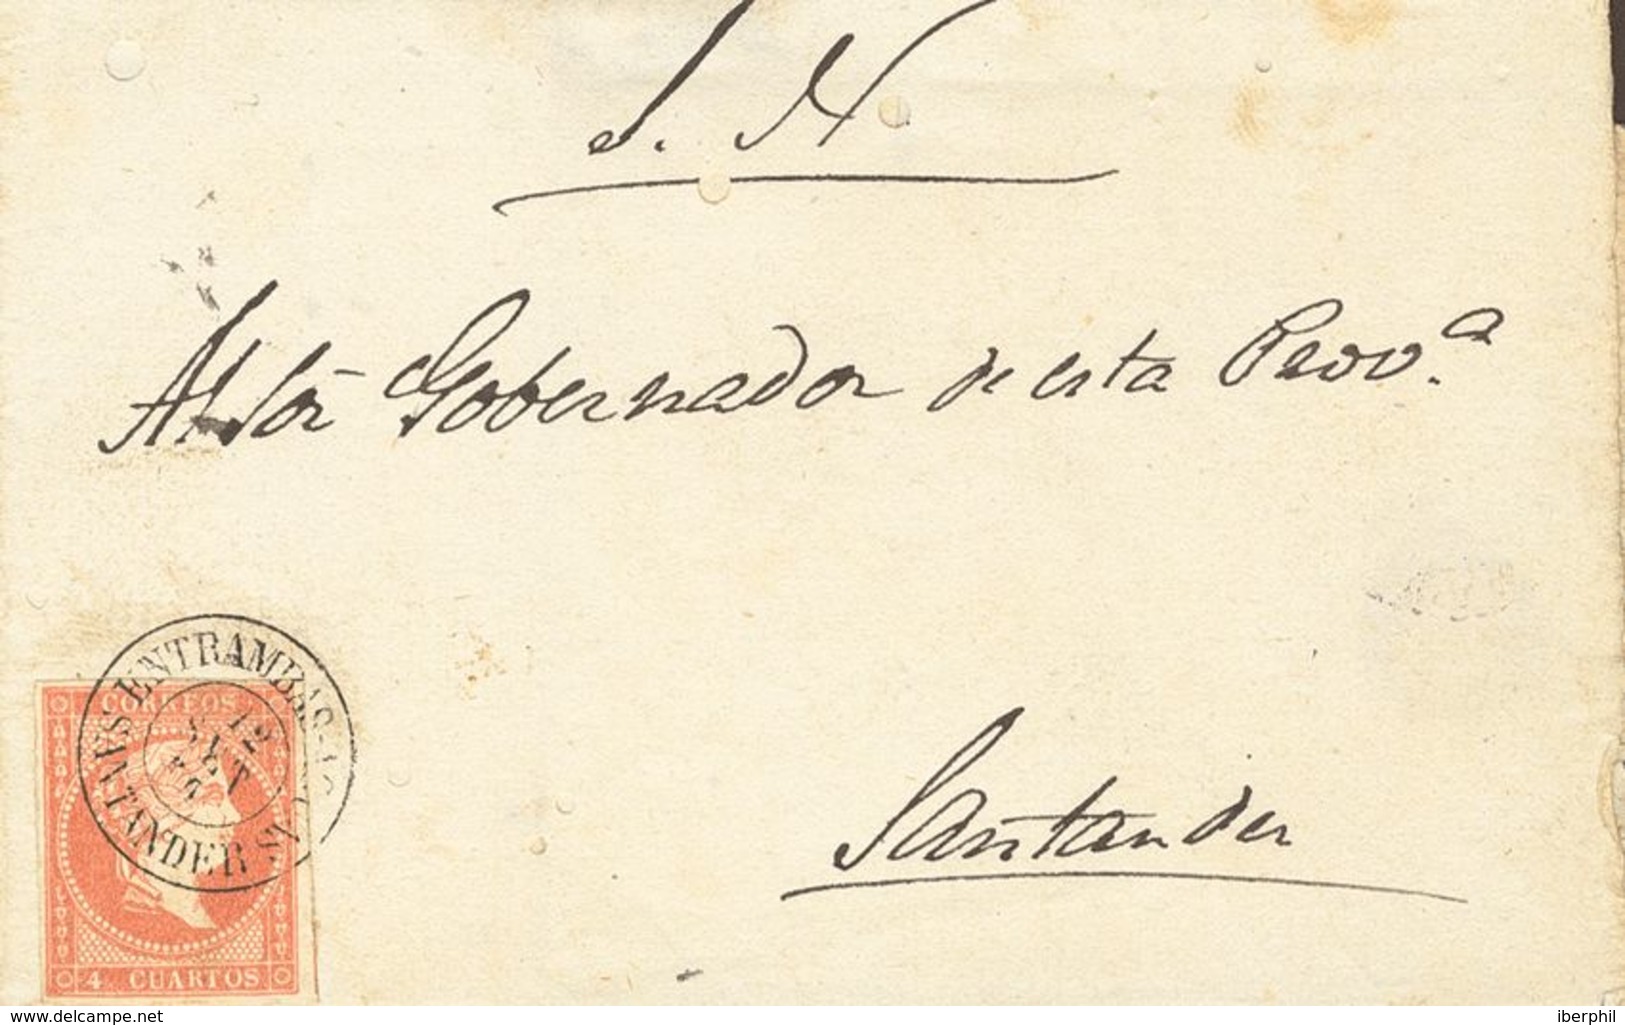 S. N.
Al Sōr Gobernador de esta Prov.ª
Santander
ENTRAMBAS-AG
SANTANDER
12 SET
CORREOS
4 CUARTOS
www.delcampe.net
iberphil